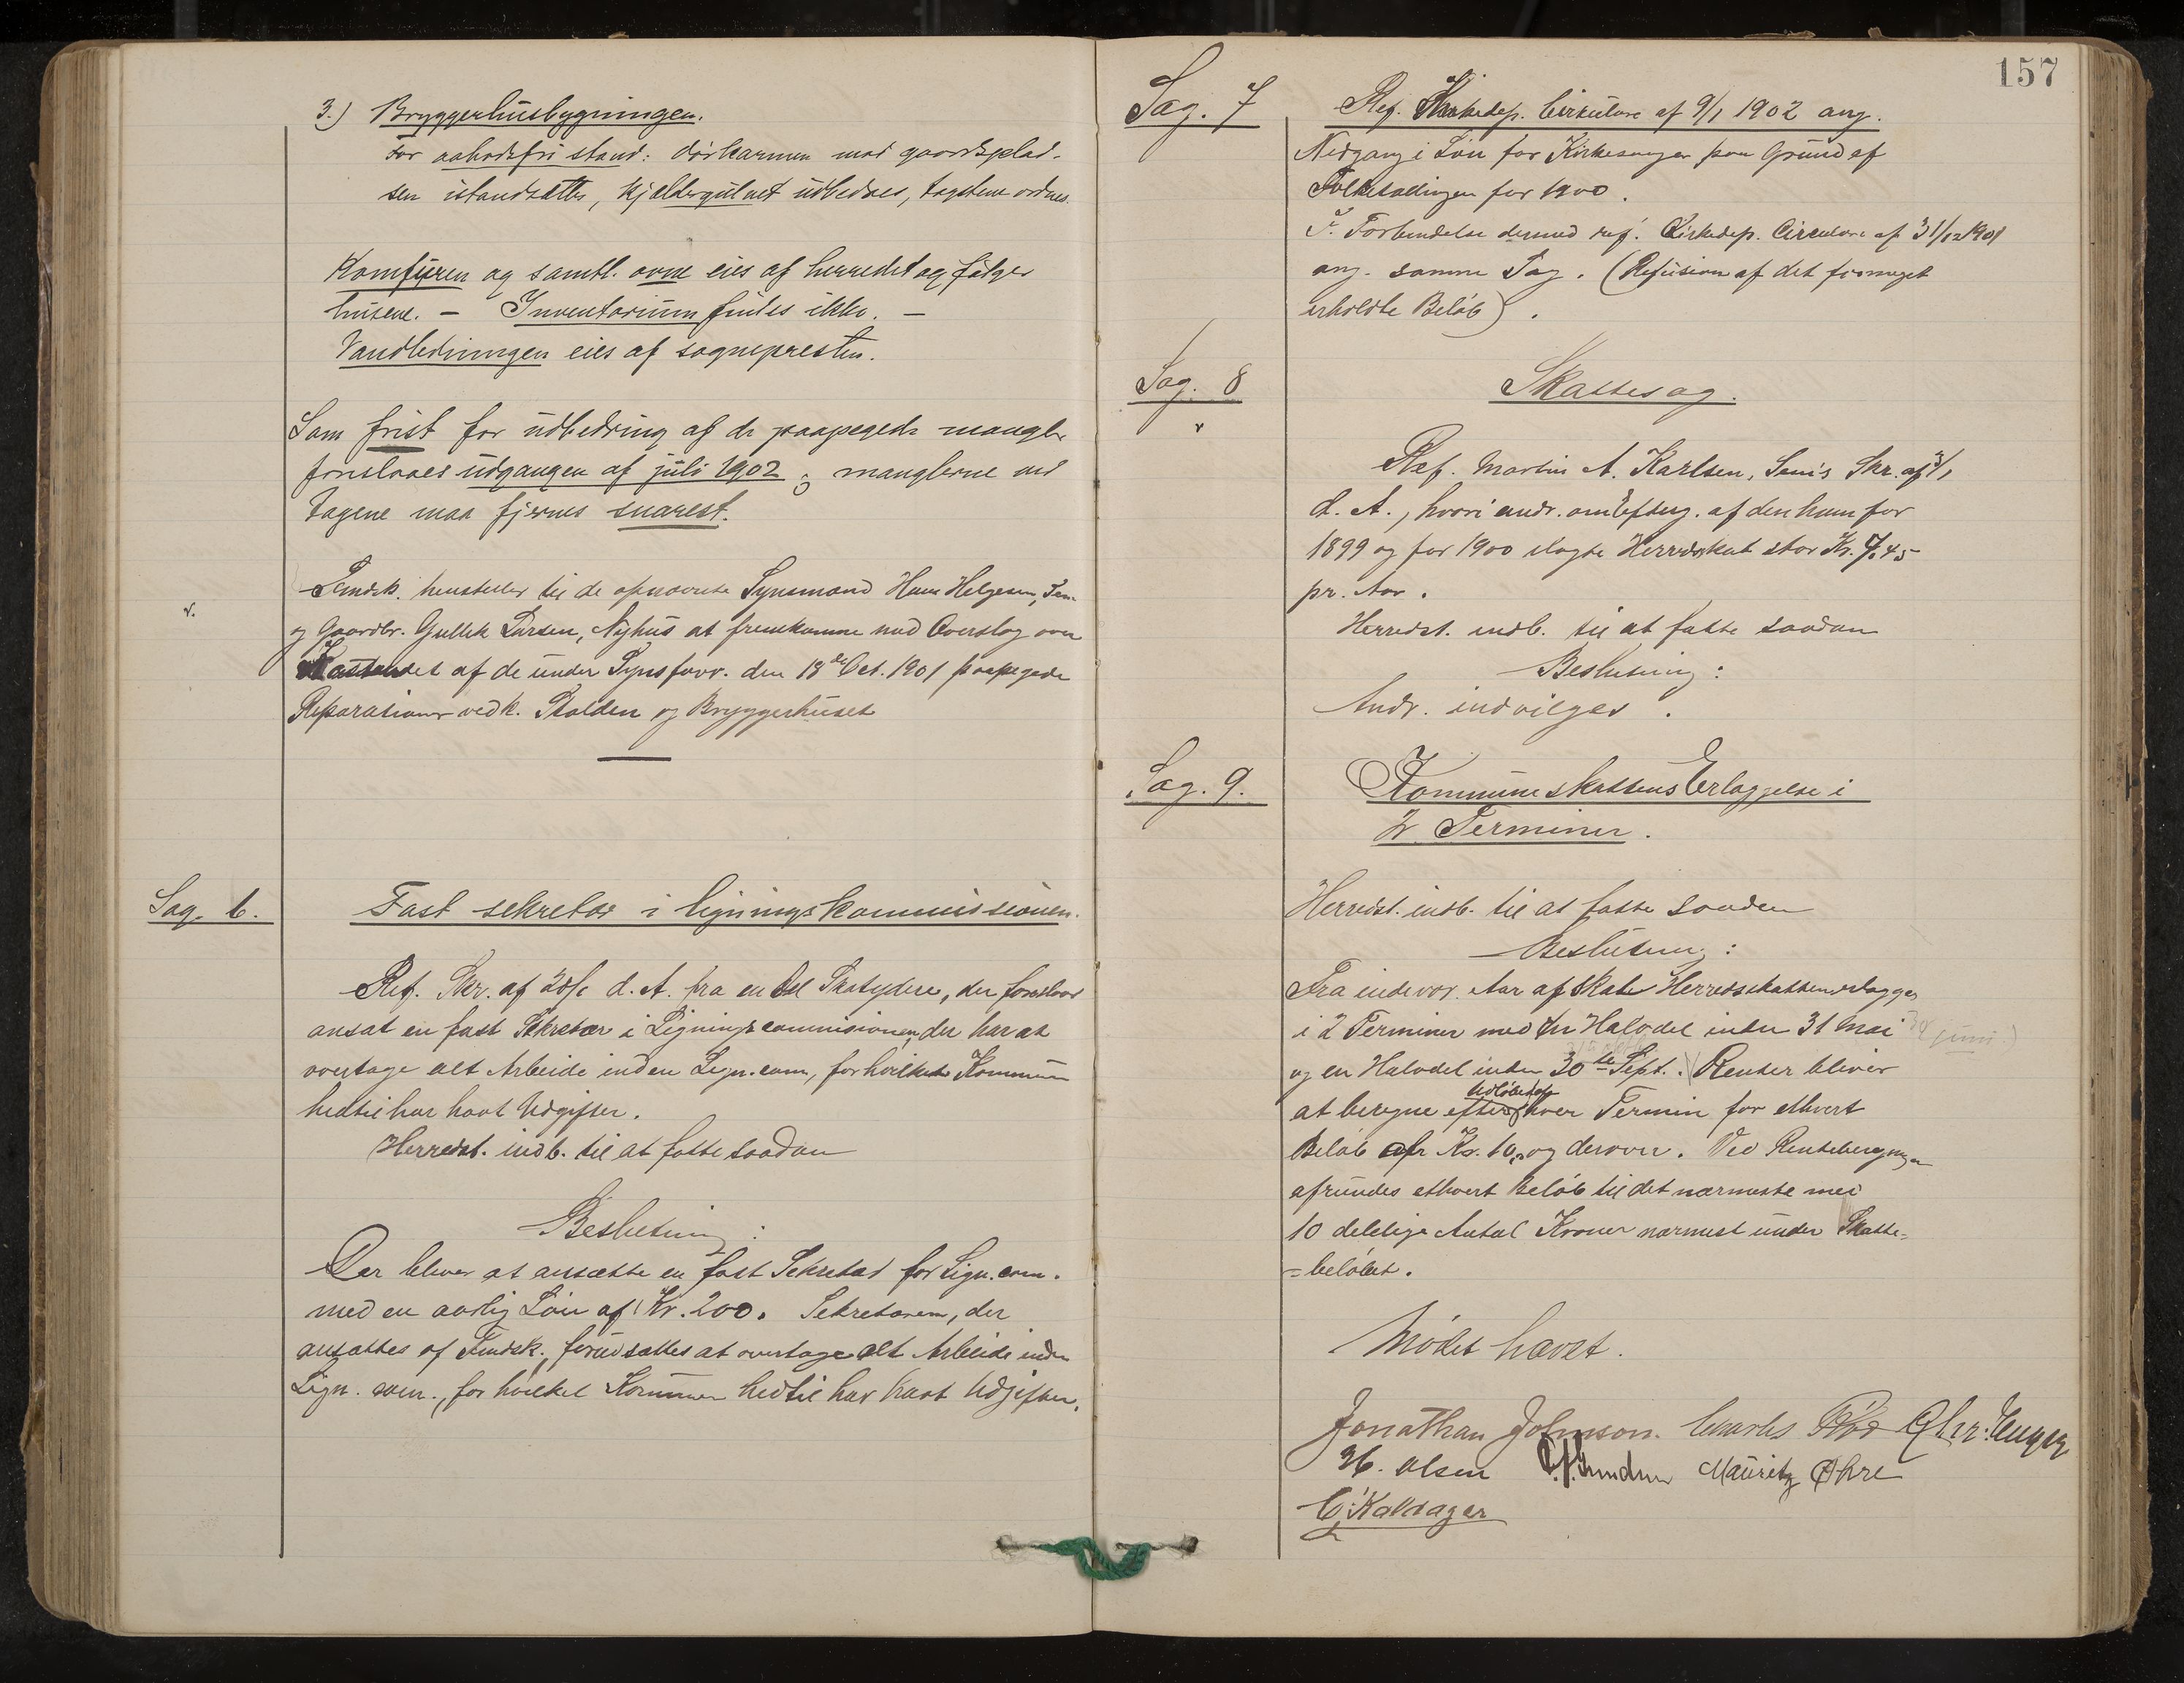 3.) Bryggerhusbygningen.
For aabodsfri stand: dörkarmen mod gaardsplad-
sen istandsættes, kjeldergulvet udbedres, tagstene ordnes.
Komfuren og samtl. ovne eies af herredet og følger
husene. — Inventarium findes ikke. —
Vandledningen eies af sognepresten.
Som frist for udbedring af de paapegede mangler
foreslaaes udgangen af juli 1902; manglerne ved
tagene maa fjernes snarest.
v.
Fmdsk. henstiller til de opnævnte Synsmænd Hans Helgesen,
og Gaardbr. Gullik Larsen, Nyhus at fremkomme med Overslag over
Kostendet af de under Synsforr. den 18de Oct. 1901 paapegede
Reparationer vedk. Stalden og Bryggerhuset
Sag. 6.
Fast sekretær i ligningskommissionen.
Ref. Skr. af 28/1 d. A. fra en Del Skatydere, der foreslaar
ansat en fast Sekretær i Ligningscommisionen, der har at
overtage alt Arbeide inden Lign. com, for hvilket Kommunen
hedtil har havt Udgifter.
Herredst. indb. til at fatte saadan
Beslutning:
Der bliver at ansætte en fast Sekretær for Lign. com.
med en aarlig Løn af Kr. 200. Sekretæren, der
ansættes af Fmdsk., forudsættes at overtage alt Arbeide inden
Lign. com., for hvilket Kommunen hedtil har havt Udgifter.
157
Sag. 7
Ref. Kirkedep. Cirkulære af 9/1 1902 ang.
Nedgang i Løn for Kirkesanger paa Grund af
Folketællingen for 1900.
I Forbindelse dermed ref. Kirkedep. Circulære af 31/12 1901
ang. samme Sag. (Refusion af det formeget
erholdte Beløb).
Sag. 8
v
Skattesag.
Ref. Martin A. Karlsen, Skr. af /1
d. A., hvori andr. om Efterg. af den ham for
1899 og for 1900 ilagte Herredsskat stor Kr. 7,45
pr. Aar.
Herredst. indb. til at fatte saadan
Beslutning:
Andr. indvilges.
Sag. 9.
Kommuneskattens Erlæggelse i
2 Terminer.
Herredst. indb. til at fatte saadan
Beslutning:
Fra indev. Aar af skal Herredsskatten erlægges
i 2 Terminer med en Halvdel inden 31 Mai juni.)
og en Halvdel inden 30te Sept. Renter bliver
Udløbet af
at beregne efter hver Termin for ethvert
Beløb Kr. 10,00 og derover. Ved Renteberegningen
afrundes ethvert Beløb til det nærmeste med
10 delelige Antal Kroner nærmest under Skatte-
=beløbet.
Mødet hævet.
Jonathan Johnson. Charles Chr.
H. Olsen Mauritz Øhre
C. Kaldager